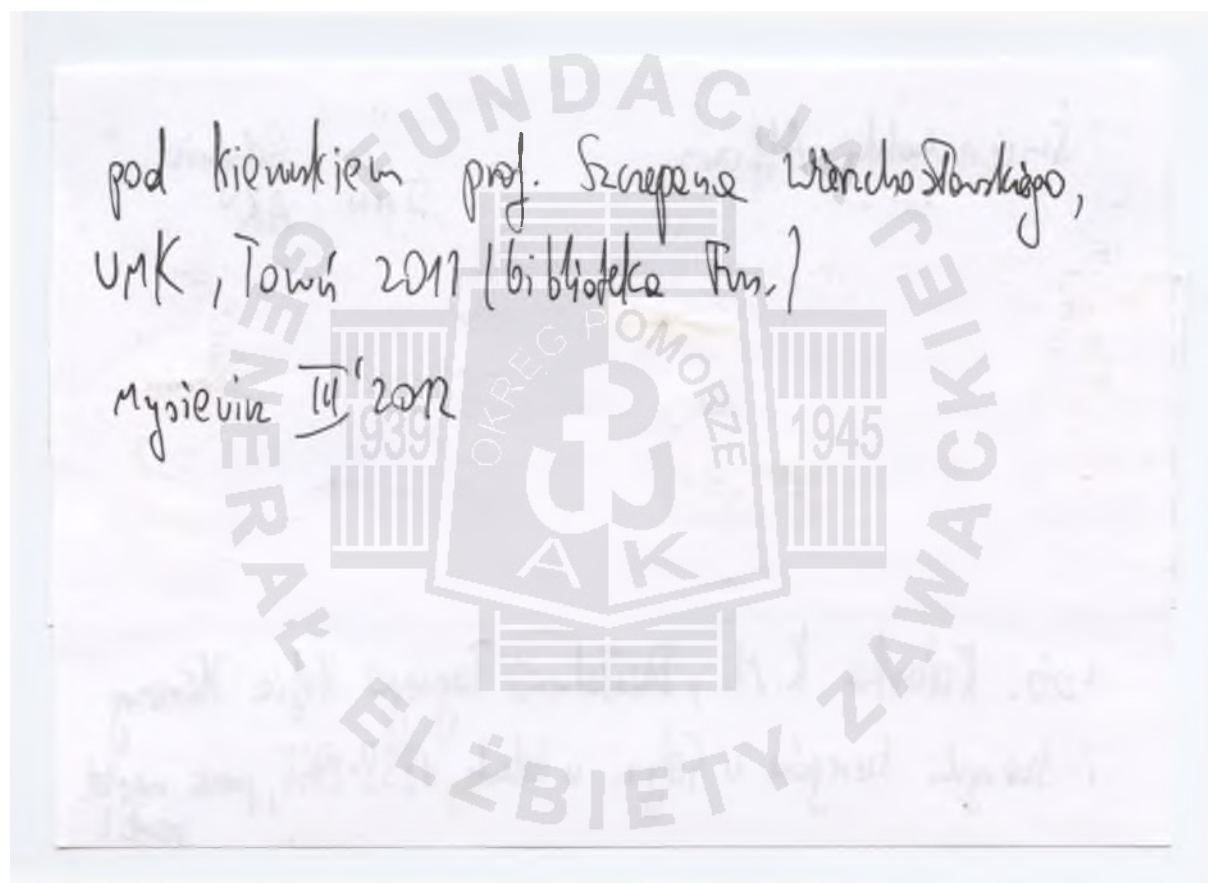 pod kierunkiem prof. Szczepana Wierzchosławskiego,
UMK, Toruń 2011 (biblioteka Fun.)
III 2012
FUNDACJA
GENERAŁ ELŻBIETY ZAWACKIEJ
OKRĘG POMORZE
1939 1945
AK